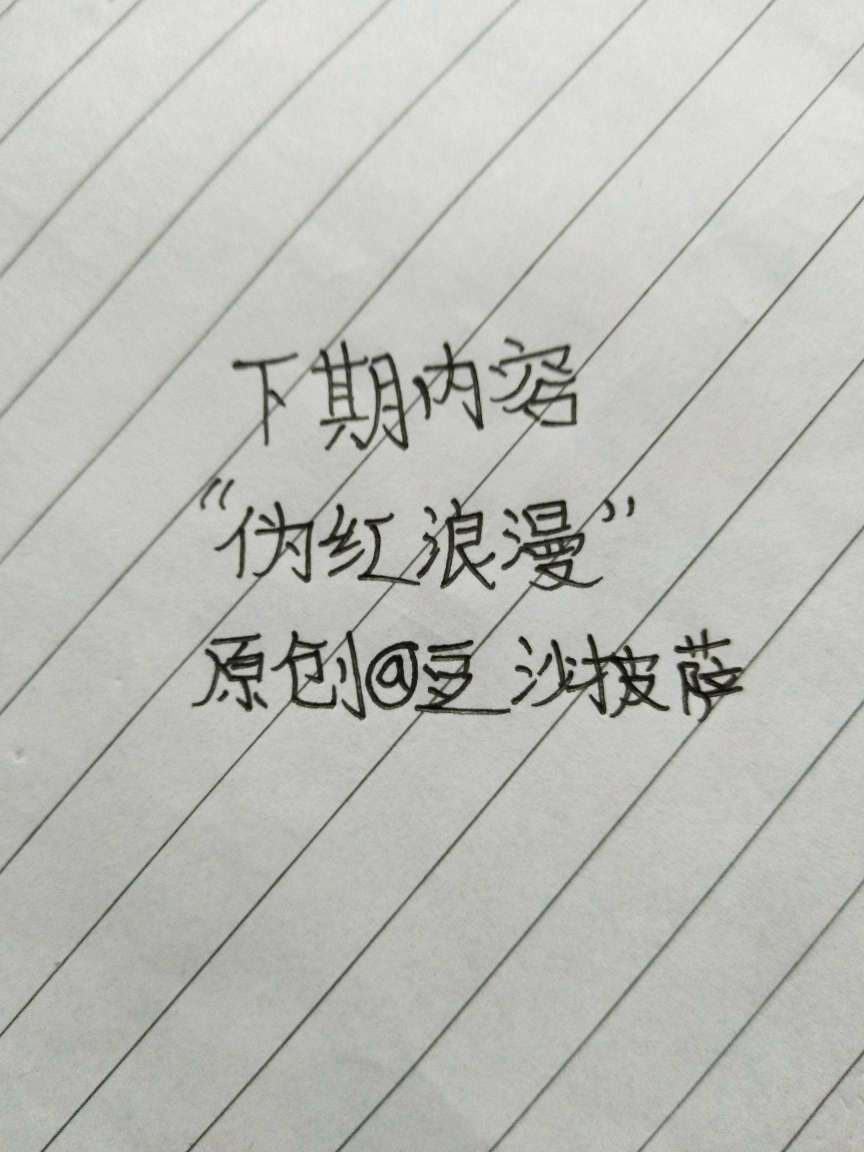 下期内容
“伪红浪漫”
原创@豆_沙披萨